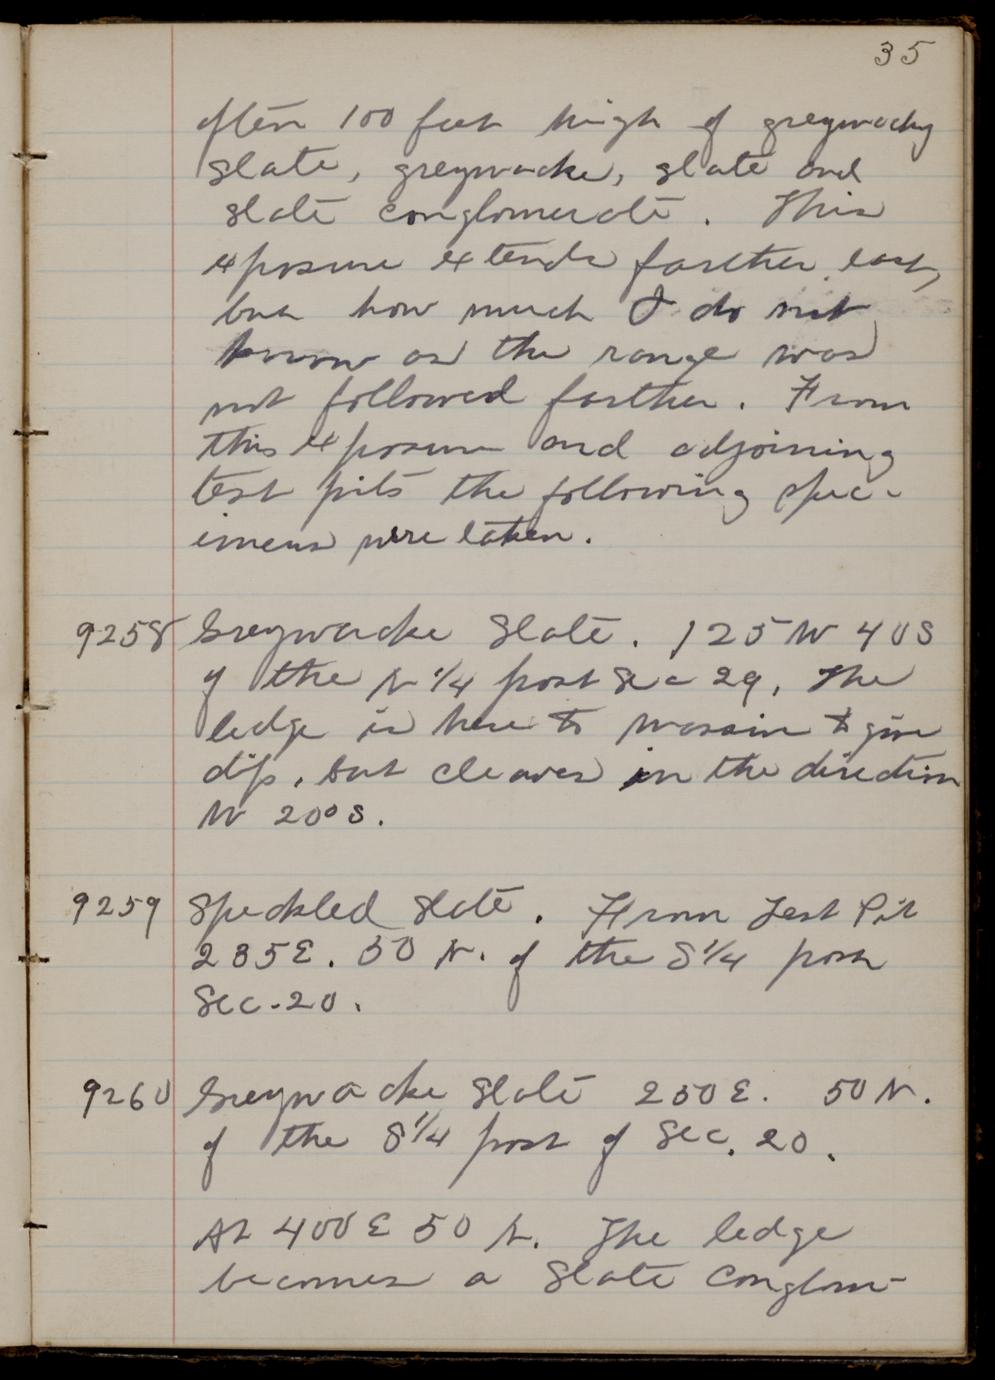 35
often 100 feet high of greywacky
slate, greywacke, slate and
slate conglomerate. This
exposure extends farther east,
but how much I do not
know as the range was
not followed farther. From
this exposure and adjoining
test pits the following spec-
imens were taken.
9258 Greywacke Slate. 125 W 40 S
of the N 1/4 post Sec 29, The
ledge is here to massive to give
dip, but cleaves in the direction
W 20° S.
9259 Speckled Slate. From Test Pit
235 E. 50 N. of the S 1/4 post
Sec. 20.
9260 Greywacke Slate 250 E. 50 N.
of the S 1/4 post of Sec. 20.
At 400 E 50 N. The ledge
becomes a Slate Conglom-